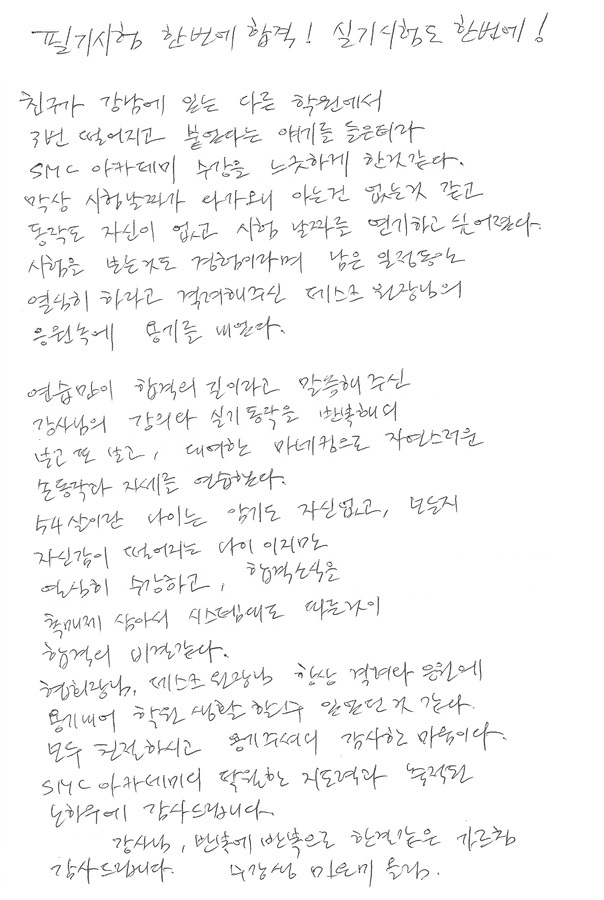 필기시험 한번에 합격! 실기시험도 한번에!
친구가 강남에 있는 다른 학원에서
3번 떨어지고 붙었다는 얘기를 들은터라
SMC 아카데미 수강을 느긋하게 한것같다.
막상 시험날짜가 다가오니 아는건 없는것 같고
동작도 자신이 없고 시험 날짜를 연기하고 싶어졌다.
시험을 보는것도 경험이라며 남은 일정동안
열심히 하라고 격려해주신 테스트 원장님의
응원속에 용기를 내었다.
연습만이 합격의 길이라고 말씀해 주신
강사님의 강의와 실기동작을 반복해서
보고 또 보고, 대여한 마네킹으로 자연스러운
손동작과 자세를 연습했다.
54살이란 나이는 암기도 자신없고, 모든지
자신감이 떨어지는 나이이지만
열심히 수강하고, 합격소식을
촉매제 삼아서 시스템대로 따른것이
합격의 비결같다.
협회장님, 테스트 원장님 항상 격려와 응원에
용기내어 학원 생활 할수 있었던것 같다.
모두 친절하시고 용기주셔서 감사한 마음이다.
SMC 아카데미의 탁월한 지도력과 축적된
노하우에 감사드립니다.
강사님, 반복에 반복으로 한결같은 가르침
감사드립니다. 수강생 올림.